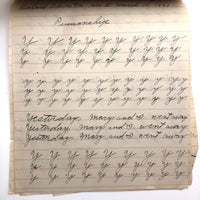 Penmanship
Y Y Y Y Y Y Y Y
Y Y Y Y Y Y Y Y
Y Y Y Y Y Y Y Y
y y y y y y y y y y y
y y y y y y y y y y y
y y y y y y y y y y y
Yesterday Mary and I went away
Yesterday Mary and I went away
Yesterday Mary and I went away
Y Y Y Y Y Y Y Y
Y Y Y Y Y Y Y Y
Y Y Y Y Y Y Y Y